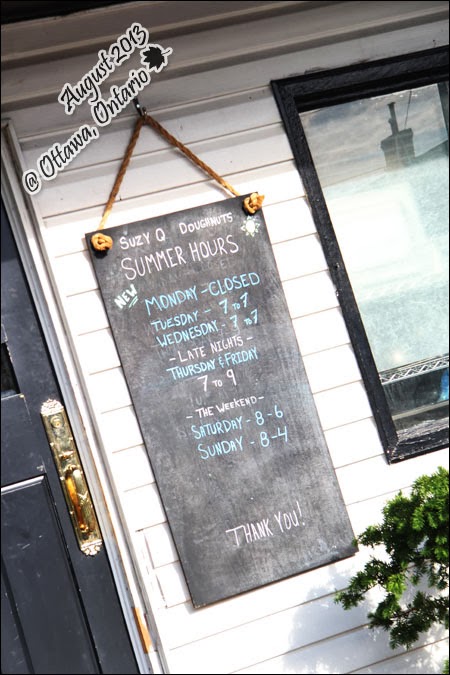 August-2013
@ Ottawa, Ontario
SUZY Q DOUGHNUTS
SUMMER HOURS
NEW
MONDAY - CLOSED
TUESDAY - 7 TO 7
WEDNESDAY - 7 TO 7
- LATE NIGHTS -
THURSDAY & FRIDAY
7 TO 9
- THE WEEKEND -
SATURDAY - 8 - 6
SUNDAY - 8-4
THANK YOU!